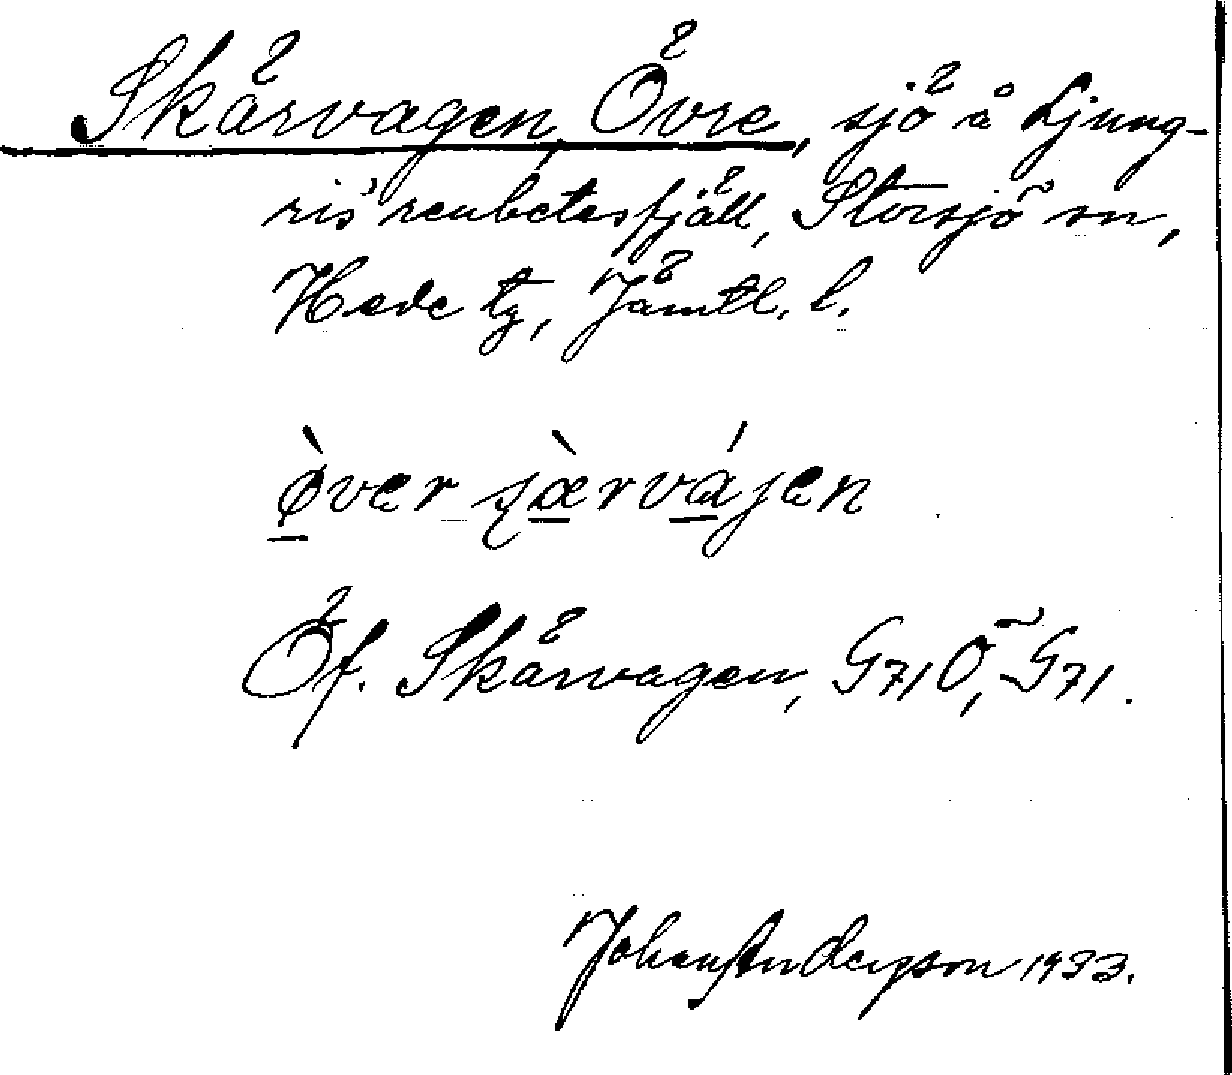 Skärvagen, Övre, sjö å Ljung-
ris' renbetesfjäll, Storsjö sn,
Hede tg, Jämtl. l.
ø̀ver sjæ̀rvájen
Öf. Skärvagen, G71Ö, G71.
Johan Anderzson 1933.